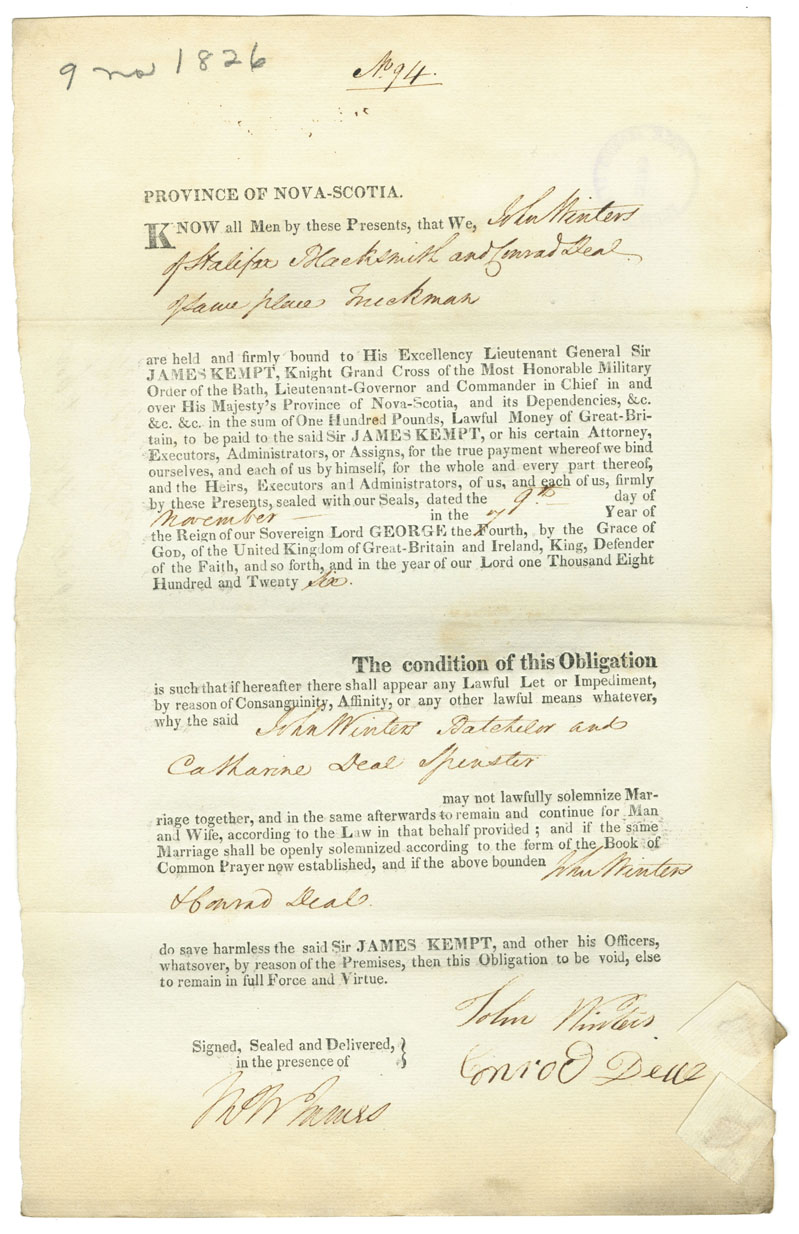 9 no 1826
No 94.
PROVINCE OF NOVA-SCOTIA.
KNOW all Men by these Presents, that We, John Winters
of Halifax Blacksmith and Conrad Deal
of same place Truckman
are held and firmly bound to His Excellency Lieutenant General Sir
JAMES KEMPT, Knight Grand Cross of the Most Honorable Military
Order of the Bath, Lieutenant-Governor and Commander in Chief in and
over His Majesty's Province of Nova-Scotia, and its Dependencies, &c.
&c. &c. in the sum of One Hundred Pounds, Lawful Money of Great-Bri-
tain, to be paid to the said Sir JAMES KEMPT, or his certain Attorney,
Executors, Administrators, or Assigns, for the true payment whereof we bind
ourselves, and each of us by himself, for the whole and every part thereof,
and the Heirs, Executors and Administrators, of us, and each of us, firmly
by these Presents, sealed with our Seals, dated the 9th day of
November in the Year of
the Reign of our Sovereign Lord GEORGE the Fourth, by the Grace of
GOD, of the United Kingdom of Great-Britain and Ireland, King, Defender
of the Faith, and so forth, and in the year of our Lord one Thousand Eight
Hundred and Twenty six.
The condition of this Obligation
is such that if hereafter there shall appear any Lawful Let or Impediment,
by reason of Consanguinity, Affinity, or any other lawful means whatever,
why the said John Winters Batchelor and
Catharine Deal Spinster
may not lawfully solemnize Mar-
riage together, and in the same afterwards to remain and continue for Man
and Wife, according to the Law in that behalf provided ; and if the same
Marriage shall be openly solemnized according to the form of the Book of
Common Prayer now established, and if the above bounden John Winters
& Conrad Deal.
do save harmless the said Sir JAMES KEMPT, and other his Officers,
whatsover, by reason of the Premises, then this Obligation to be void, else
to remain in full Force and Virtue.
John Winters
Signed, Sealed and Delivered,
in the presence of
Conrod Deal
James